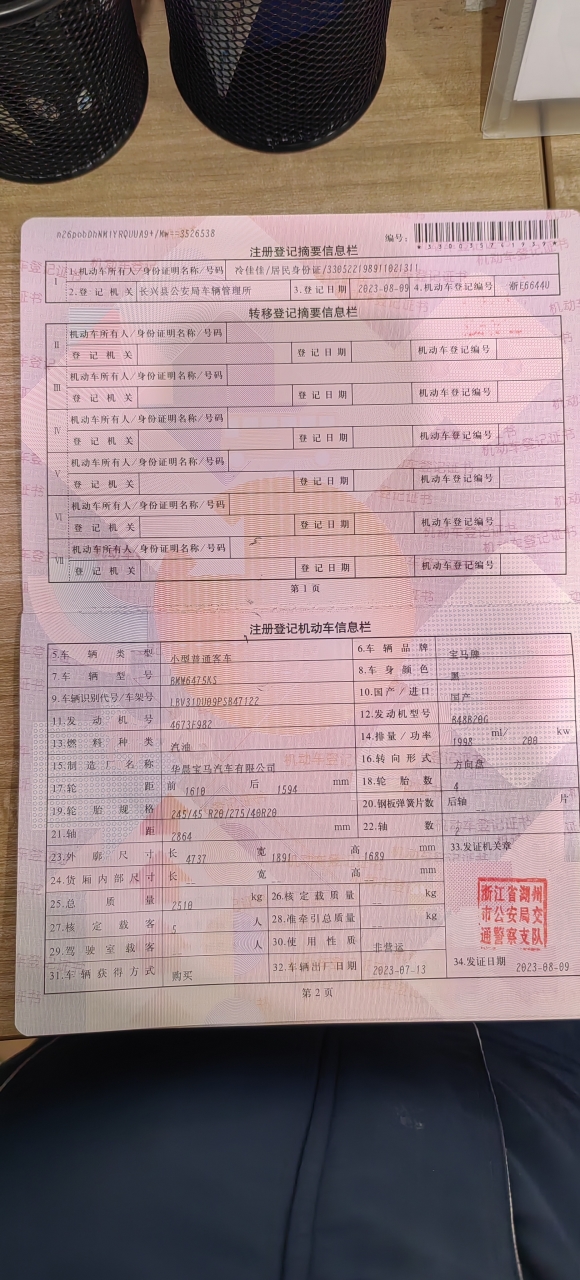 n26pobDhNMIYRQUUA9+/Mw==3526538
编号:
*330033741939*
注册登记摘要信息栏
I 1.机动车所有人/身份证明名称/号码 冷佳佳/居民身份证/330522198911021311
2.登记机关 长兴县公安局车辆管理所 3.登记日期 2023-08-09 4.机动车登记编号 浙E6644U
转移登记摘要信息栏
II 机动车所有人/身份证明名称/号码
登记机关 登记日期 机动车登记编号
III 机动车所有人/身份证明名称/号码
登记机关 登记日期 机动车登记编号
IV 机动车所有人/身份证明名称/号码
登记机关 登记日期 机动车登记编号
V 机动车所有人/身份证明名称/号码
登记机关 登记日期 机动车登记编号
VI 机动车所有人/身份证明名称/号码
登记机关 登记日期 机动车登记编号
VII 机动车所有人/身份证明名称/号码
登记机关 登记日期 机动车登记编号
第1页
注册登记机动车信息栏
5.车辆类型 小型普通客车 6.车辆品牌 宝马牌
7.车辆型号 BMW6475KS 8.车身颜色 黑
9.车辆识别代号/车架号 LBV31DU09PSB47122 10.国产/进口 国产
11.发动机号 4673F982 12.发动机型号 B48B20G
13.燃料种类 汽油 14.排量/功率 1998 ml/ 200 kw
15.制造厂名称 华晨宝马汽车有限公司 16.转向形式 方向盘
17.轮距 前 1610 后 1594 mm 18.轮胎数 4
19.轮胎规格 245/45 R20/275/40R20 20.钢板弹簧片数 后轴 -- 片
21.轴距 2864 mm 22.轴数 2
23.外廓尺寸 长 4737 宽 1891 高 1689 mm 33.发证机关章
24.货厢内部尺寸 长 -- 宽 -- 高 -- mm
25.总质量 2510 kg 26.核定载质量 -- kg
27.核定载客 5 人 28.准牵引总质量 -- kg
29.驾驶室载客 -- 人 30.使用性质 非营运
31.车辆获得方式 购买 32.车辆出厂日期 2023-07-13 34.发证日期 2023-08-09
浙江省湖州
市公安局交
通警察支队
第2页